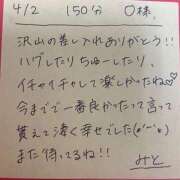 4/2 150分 O様
沢山の差し入れありがとう!!
ハグしたりちゅーしたり、
イチャイチャして楽しかったね♡♡
今までで一番良かったって言って
貰えて凄く幸せでした(๑'ᵕ'๑)
また待ってるね!!
みと